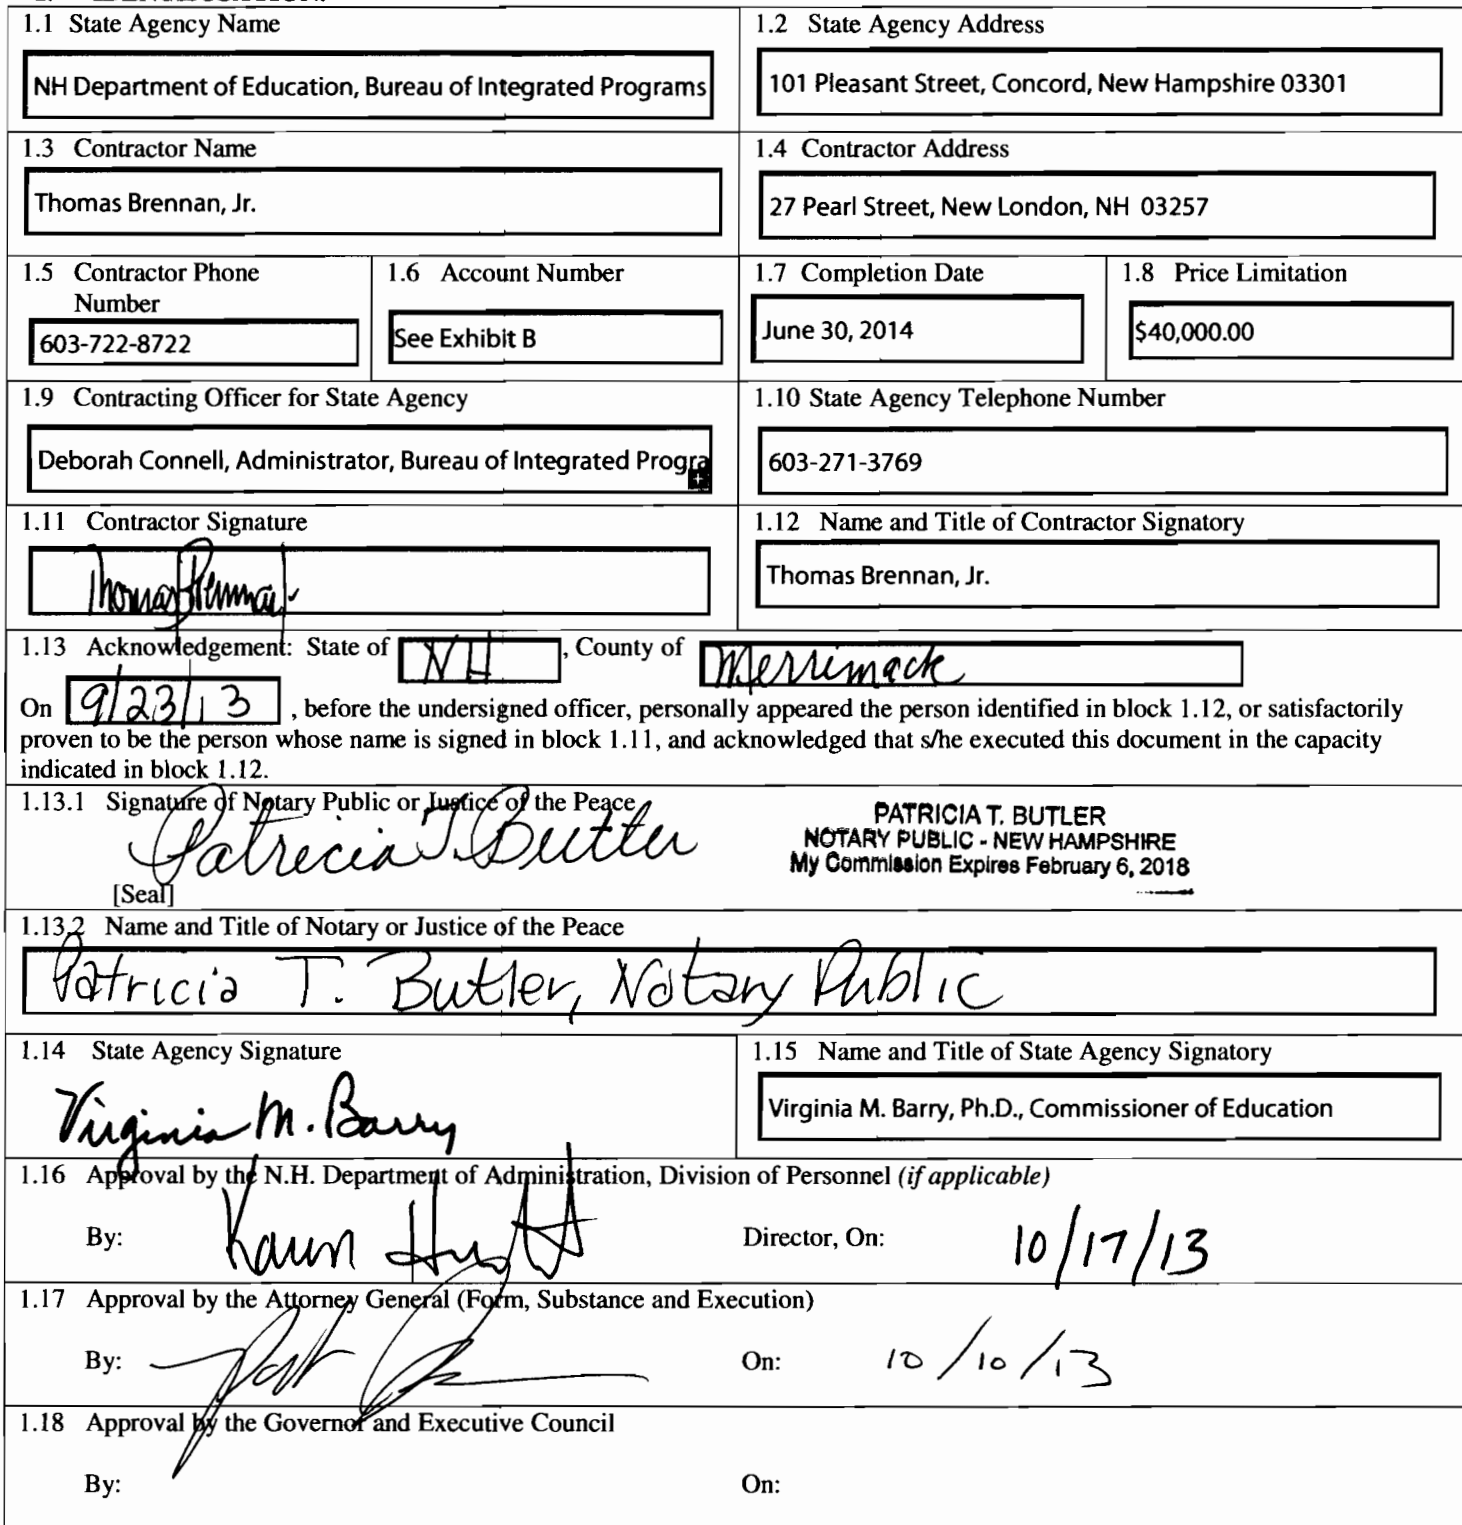 1.1 State Agency Name
NH Department of Education, Bureau of Integrated Programs
1.2 State Agency Address
101 Pleasant Street, Concord, New Hampshire 03301
1.3 Contractor Name
Thomas Brennan, Jr.
1.4 Contractor Address
27 Pearl Street, New London, NH 03257
1.5 Contractor Phone
Number
603-722-8722
1.6 Account Number
See Exhibit B
1.7 Completion Date
June 30, 2014
1.8 Price Limitation
$40,000.00
1.9 Contracting Officer for State Agency
Deborah Connell, Administrator, Bureau of Integrated Progra
1.10 State Agency Telephone Number
603-271-3769
1.11 Contractor Signature
Thomas Brennan Jr.
1.12 Name and Title of Contractor Signatory
Thomas Brennan, Jr.
1.13 Acknowledgement: State of NH, County of Merrimack
On 9/23/13, before the undersigned officer, personally appeared the person identified in block 1.12, or satisfactorily
proven to be the person whose name is signed in block 1.11, and acknowledged that s/he executed this document in the capacity
indicated in block 1.12.
1.13.1 Signature of Notary Public or Justice of the Peace
Patricia T. Butler
[Seal]
PATRICIA T. BUTLER
NOTARY PUBLIC - NEW HAMPSHIRE
My Commission Expires February 6, 2018
1.13.2 Name and Title of Notary or Justice of the Peace
Patricia T. Butler, Notary Public
1.14 State Agency Signature
Virginia M. Barry
1.15 Name and Title of State Agency Signatory
Virginia M. Barry, Ph.D., Commissioner of Education
1.16 Approval by the N.H. Department of Administration, Division of Personnel (if applicable)
By: Karen
Director, On: 10/17/13
1.17 Approval by the Attorney General (Form, Substance and Execution)
By:
On: 10/10/13
1.18 Approval by the Governor and Executive Council
By:
On: